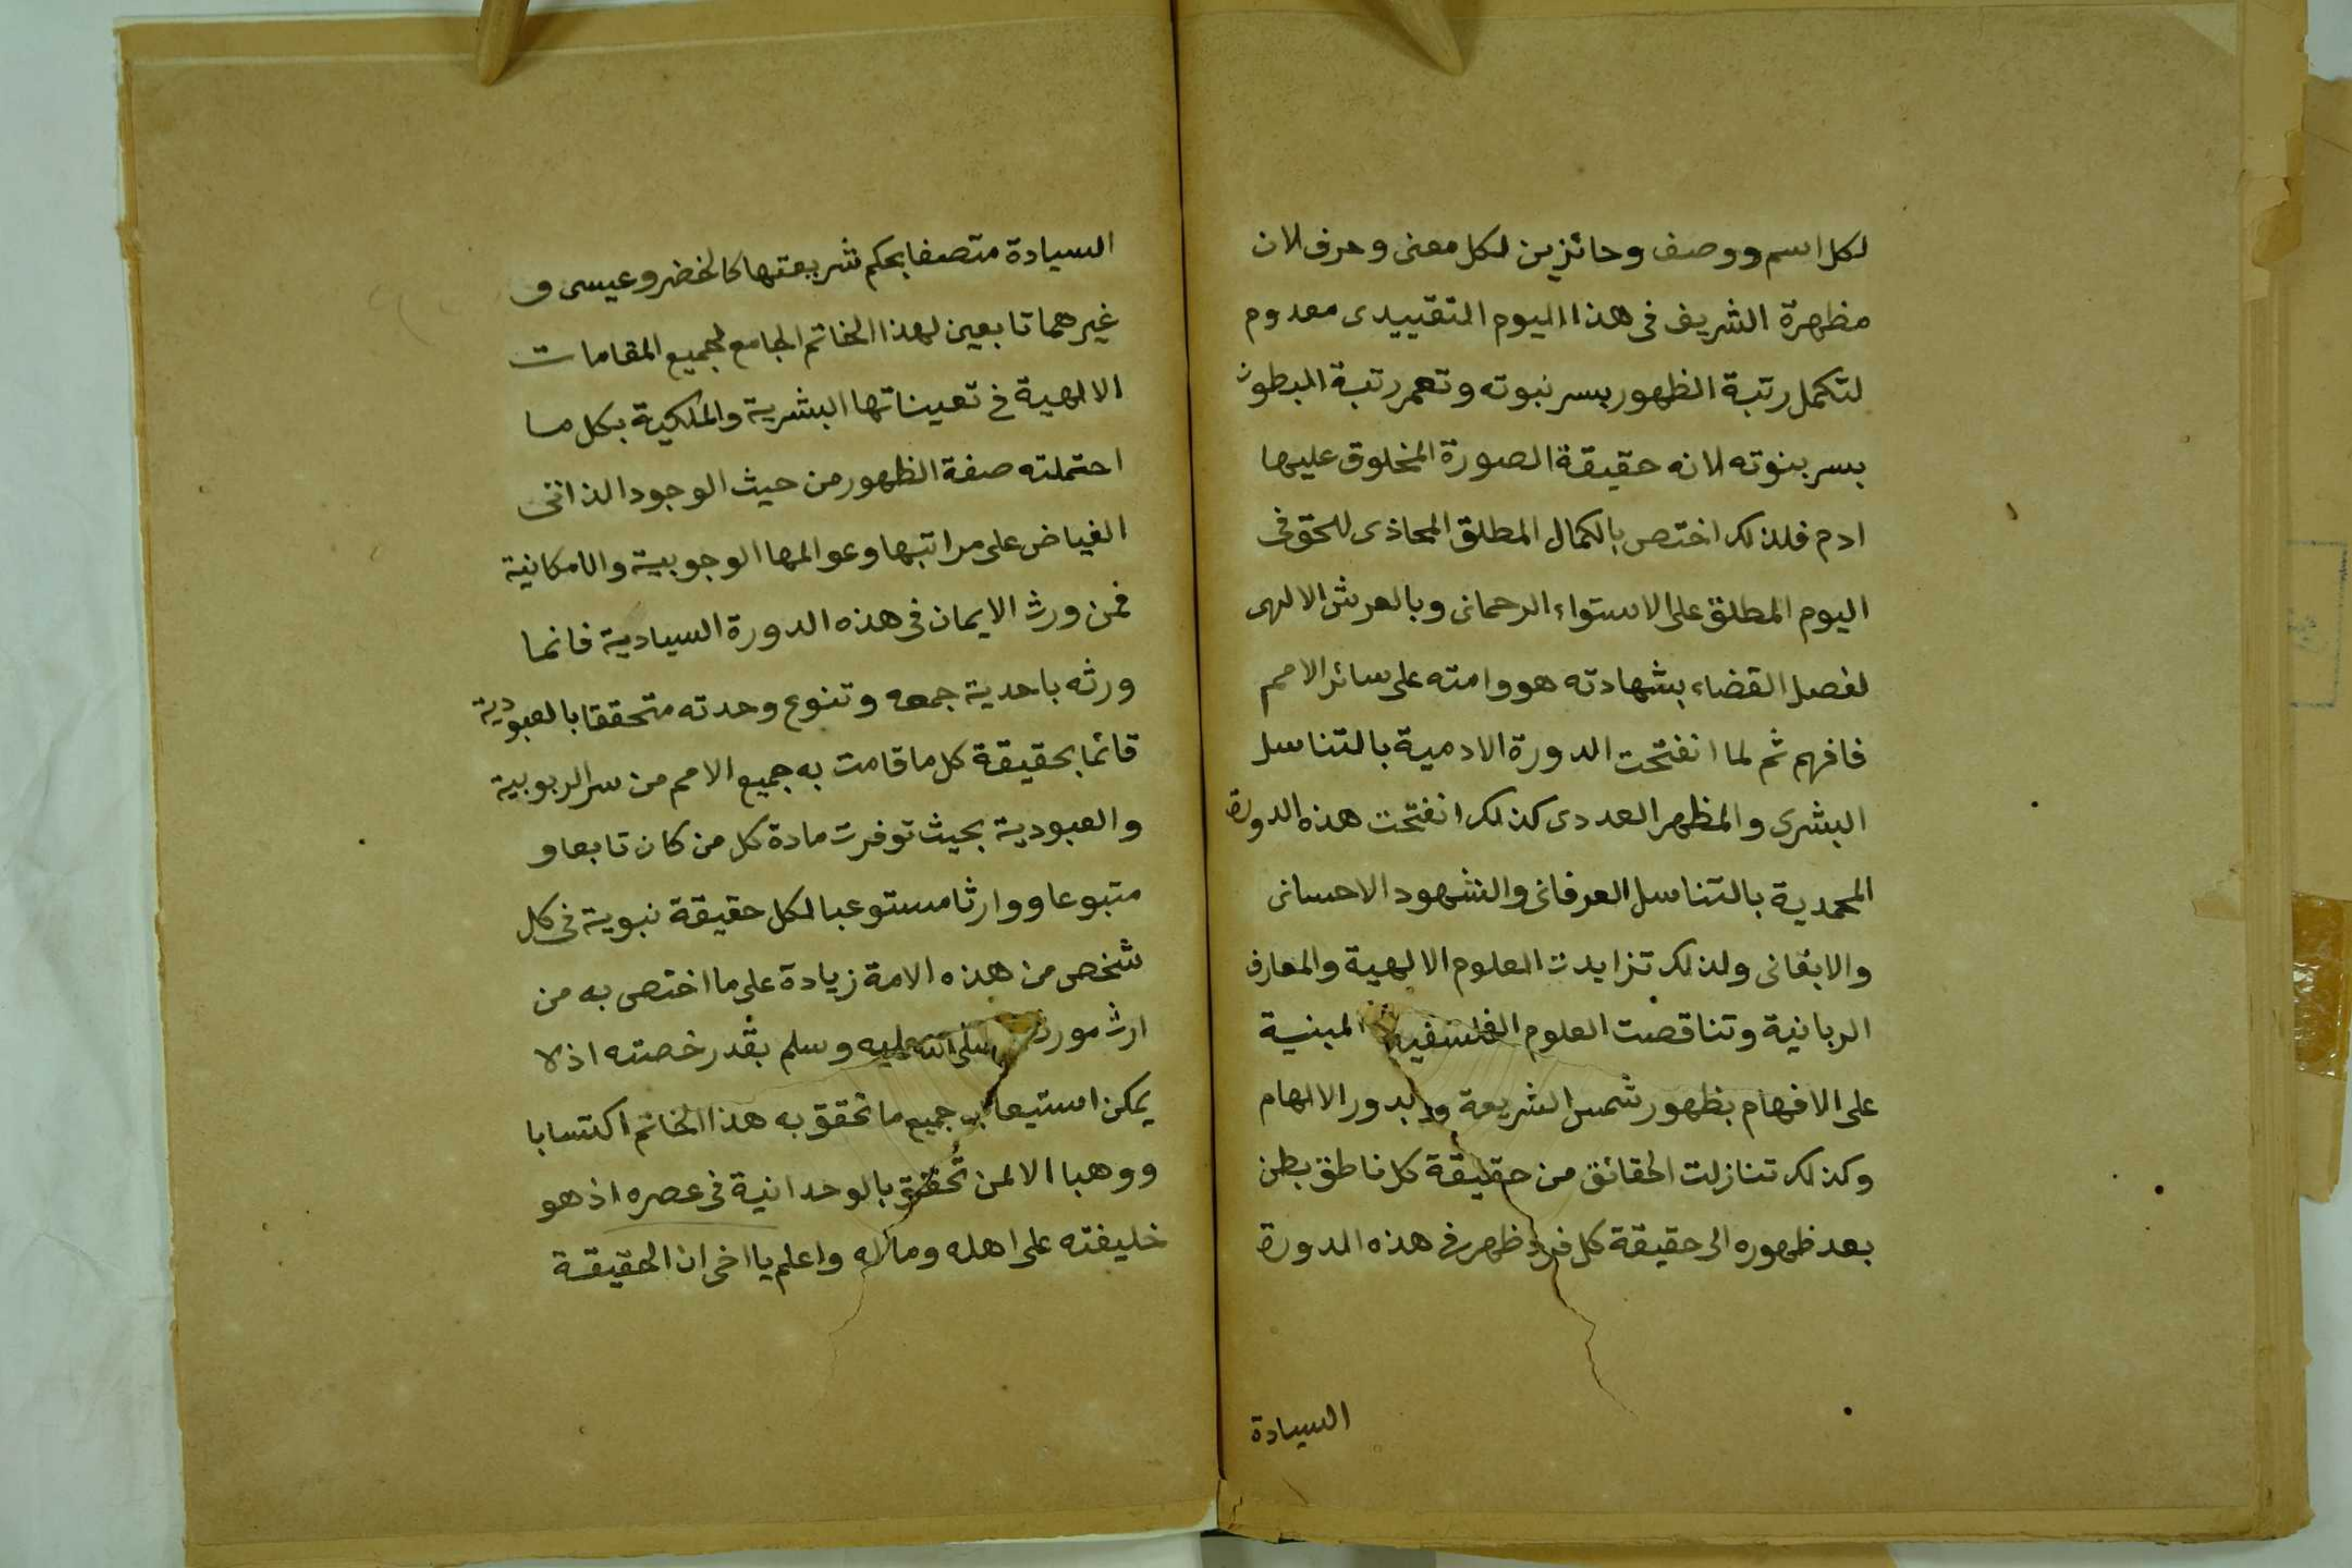 لكل اسم ووصف وحائزين لكل معنى وحرف لان
مظهرة الشريف فى هذا اليوم التقييدى معدوم
لتكمل رتبة الظهور بسر نبوته وتعمر رتبة البطون
بسر بنوته لانه حقيقة الصورة المخلوق عليها
ادم فلذلك اختص بالكمال المطلق المحاذى للحق فى
اليوم المطلق على الاستواء الرحمانى وبالعرش الالهى
لفصل القضاء بشهادته هو وامته على سائر الامم
فافهم ثم لما انفتحت الدورة الادمية بالتناسل
البشرى والمظهر العددى كذلك انفتحت هذه الدورة
المحمدية بالتناسل العرفانى والشهود الاحسانى
والايقانى ولذلك تزايدت العلوم الالهية والمعارف
الربانية وتناقصت العلوم الفلسفية المبنية
على الافهام بظهور شمس الشريعة وبدور الالهام
وكذلك تنازلت الحقائق من حقيقة كل ناطق بطن
بعد ظهوره الى حقيقة كل فرد ظهر فى هذه الدورة
السيادة
السيادة متصفا بحكم شريعتها كالخضر وعيسى و
غيرهما تابعين لهذا الخاتم الجامع لجميع المقامات
الالهية فى تعيناتها البشرية والملكية بكل ما
احتملته صفة الظهور من حيث الوجود الذاتى
الفياض على مراتبها وعوالمها الوجوبية والامكانية
فمن ورث الايمان فى هذه الدورة السيادية فانما
ورثه باحدية جمعه وتنوع وحدته متحققا بالعبودية
قائما بحقيقة كل ما قامت به جميع الامم من سر الربوبية
والعبودية بحيث توفرت مادة كل من كان تابعا و
متبوعا ووارثا مستوعبا لكل حقيقة نبوية فى كل
شخص من هذه الامة زيادة على ما اختص به من
ارث صلى الله عليه وسلم بقدر خصته اذ لا
يمكن استيعاب جميع ما تحقق به هذا الخاتم اكتسابا
ووهبا الا لمن تحقق بالوحدانية فى عصره اذ هو
خليفته على اهله وماله واعلم يا اخى ان الحقيقة